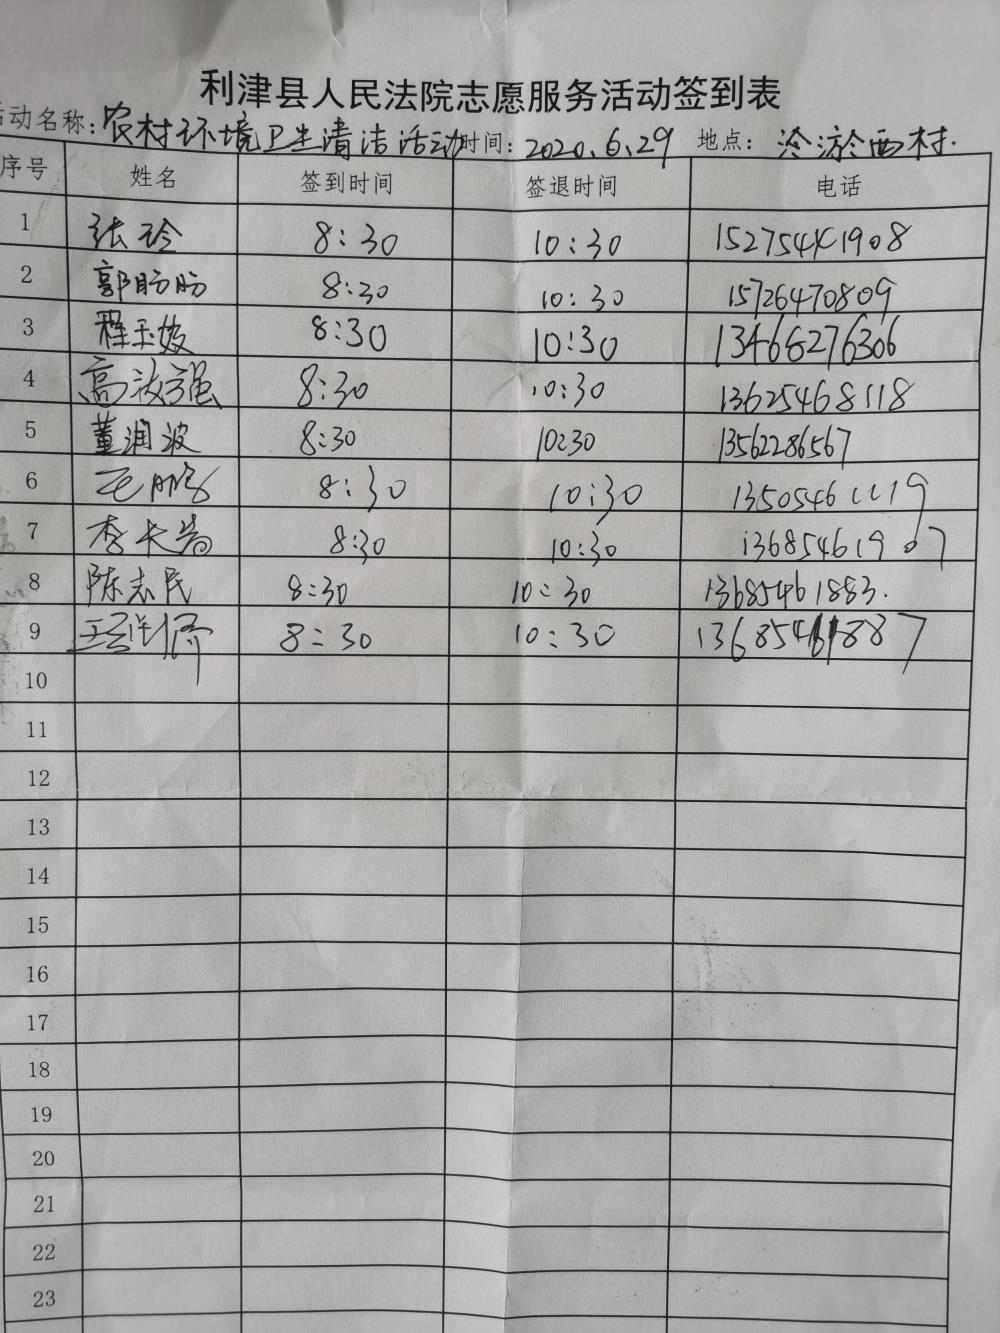 利津县人民法院志愿服务活动签到表
活动名称：农村环境卫生清洁活动 时间：2020.6.29 地点：
序号 姓名 签到时间 签退时间 电话
1 张玲 8:30 10:30
2 郭盼盼 8:30 10:30 15726470809
3 8:30 10:30 13466276306
4 高 强 8:30 10:30 13625468118
5 董润波 8:30 10:30 13562286567
6 8:30 10:30 13505461119
7 李 8:30 10:30 13685461907
8 陈志民 8:30 10:30 13685461883.
9 8:30 10:30
10
11
12
13
14
15
16
17
18
19
20
21
22
23